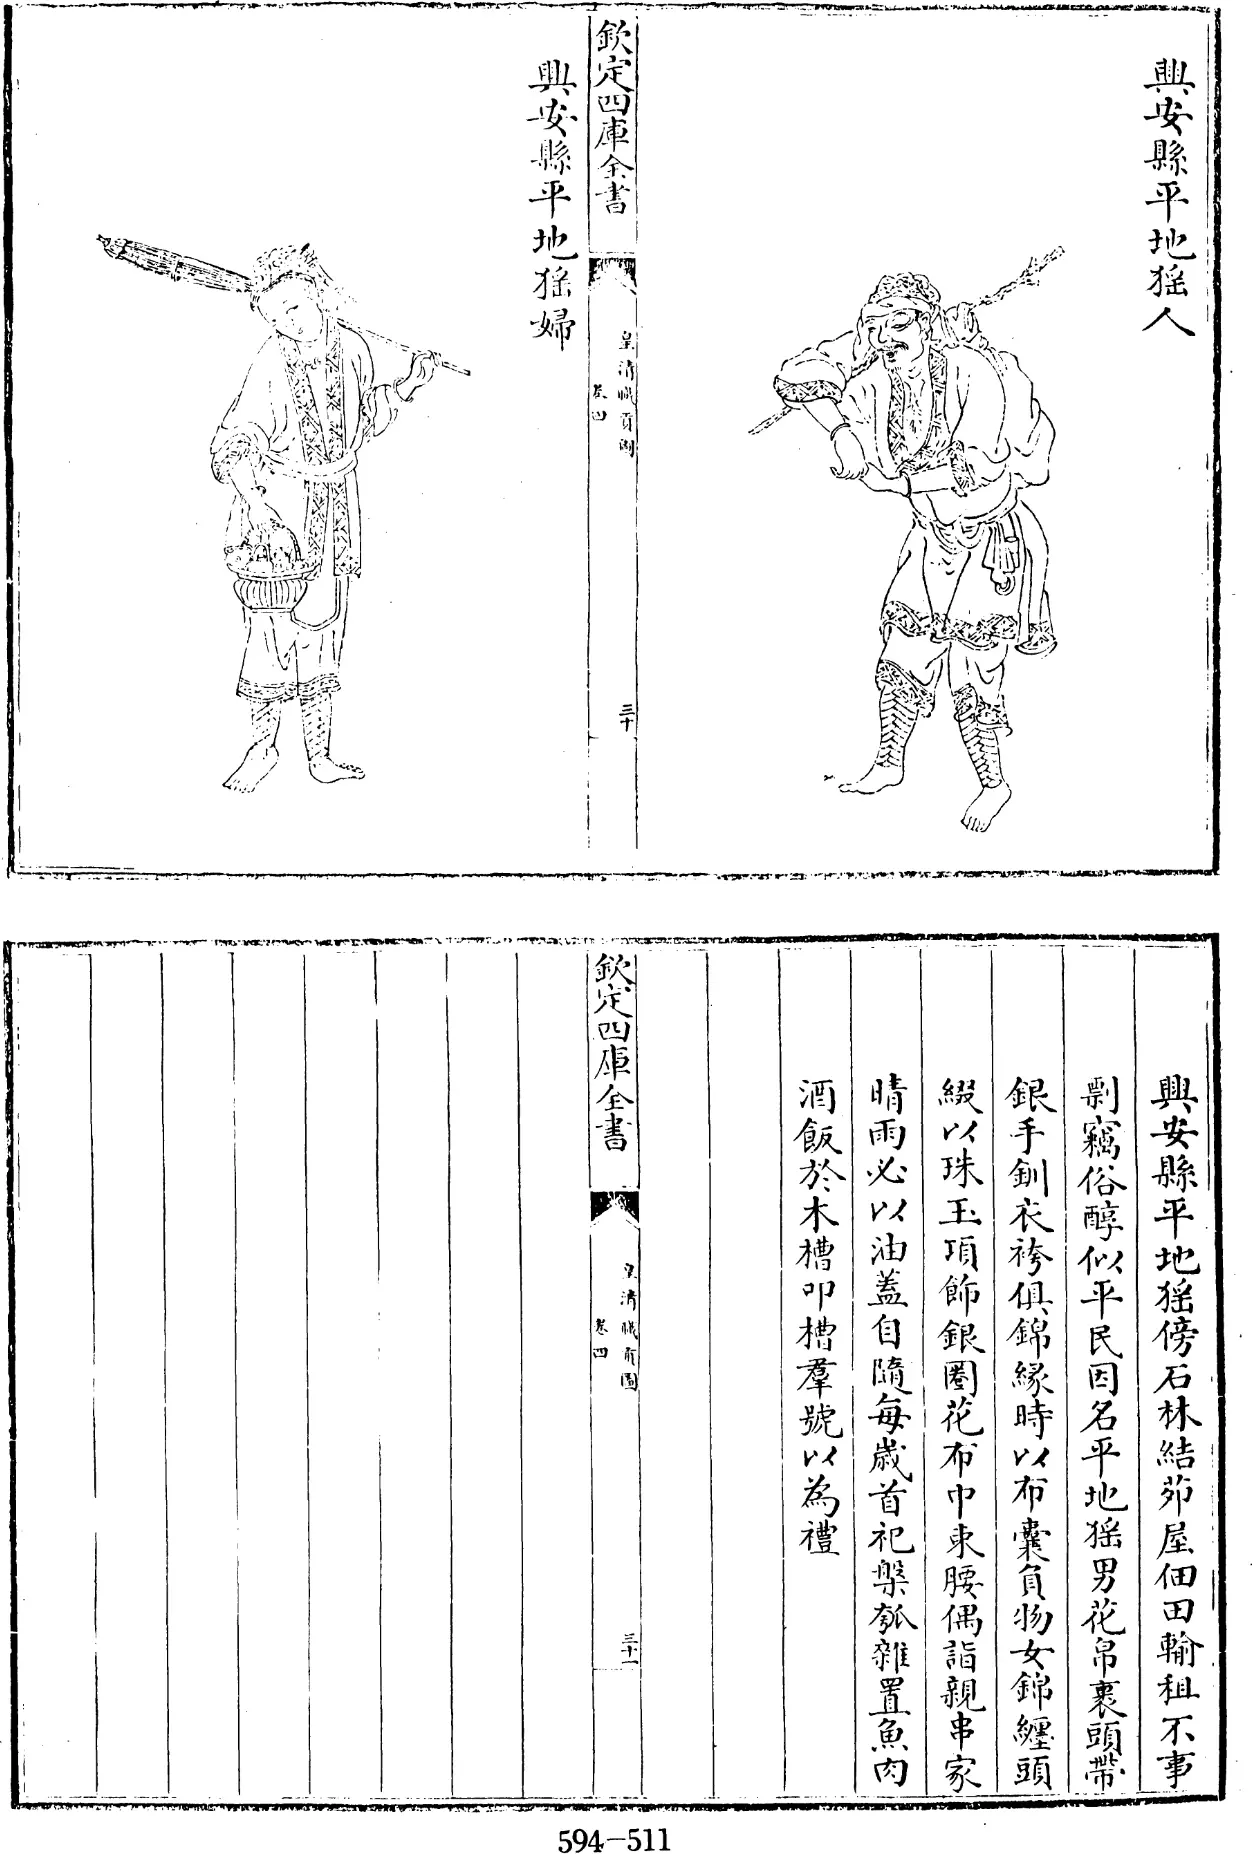 興安縣平地猺人
欽定四庫全書
皇清職貢圖
卷四
三十
興安縣平地猺婦
興安縣平地猺傍石林結茆屋佃田輸租不事
剽竊俗醇似平民因名平地猺男花帛裹頭帶
銀手釧衣袴俱錦緣時以布囊負物女錦纏頭
綴以珠玉項飾銀圈花布巾束腰偶詣親串家
晴雨必以油蓋自隨每歲首祀槃瓠雜置魚肉
酒飯於木槽叩槽羣號以為禮
欽定四庫全書
皇清職貢圖
卷四
三十一
594-511